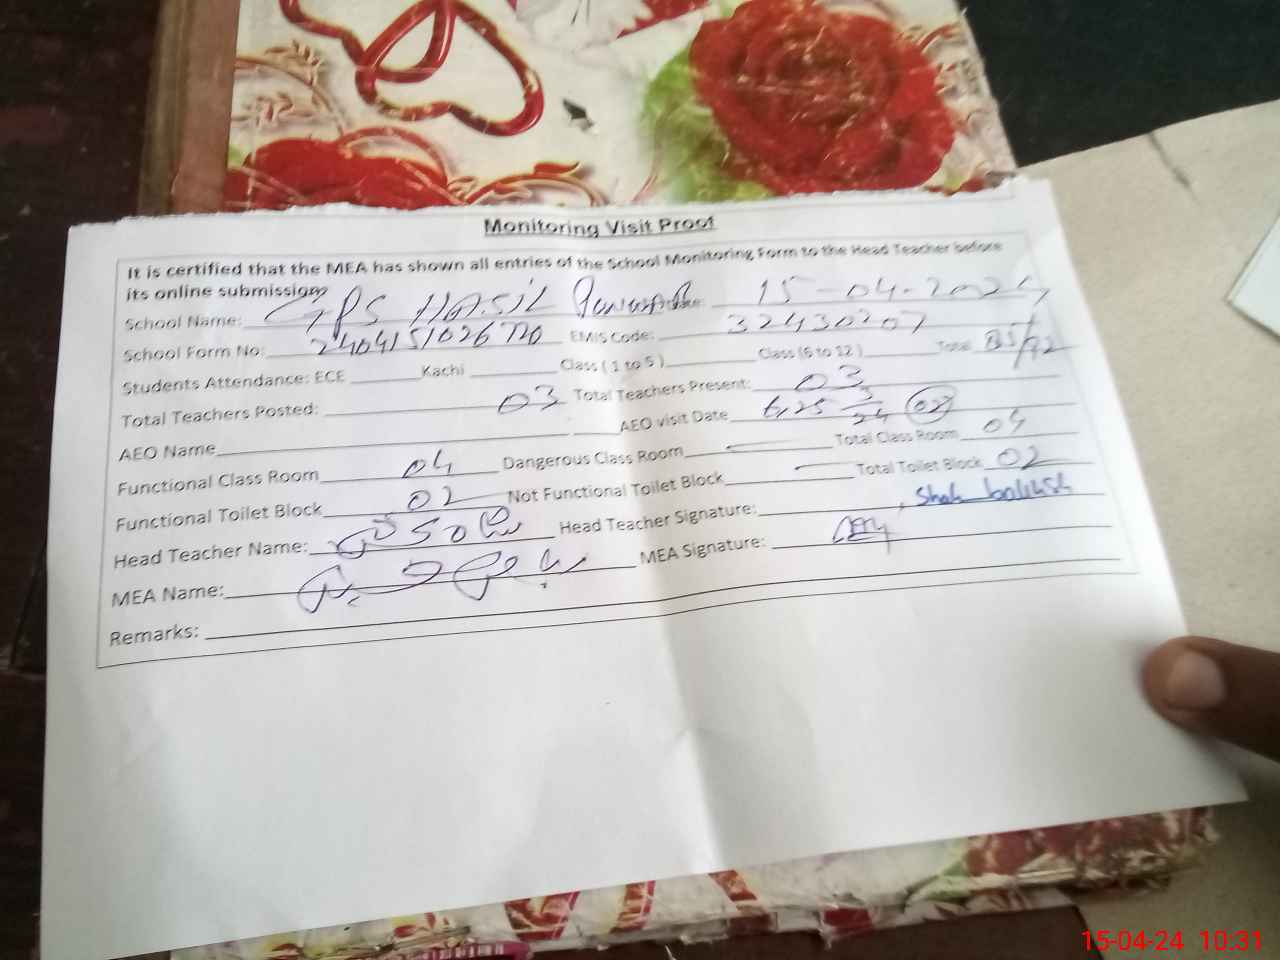 Monitoring Visit Proof
It is certified that the MEA has shown all entries of the School Monitoring Form to the Head Teacher before
its online submission
School Name: GPS Hasil Date: 15-04-2024
School Form No: 2404151026720 EMIS Code: 32430207
Students Attendance: ECE Kachi Class ( 1 to 5 ) Class (6 to 12 ) Total 85/92
Total Teachers Posted: 03 Total Teachers Present: 03
AEO Name AEO visit Date 6,25 3/24 02
Functional Class Room 04 Dangerous Class Room Total Class Room 04
Functional Toilet Block 02 Not Functional Toilet Block Total Toilet Block 02
Head Teacher Name: Head Teacher Signature: Shah bakhsh
MEA Name: MEA Signature:
Remarks:
15-04-24 10:31